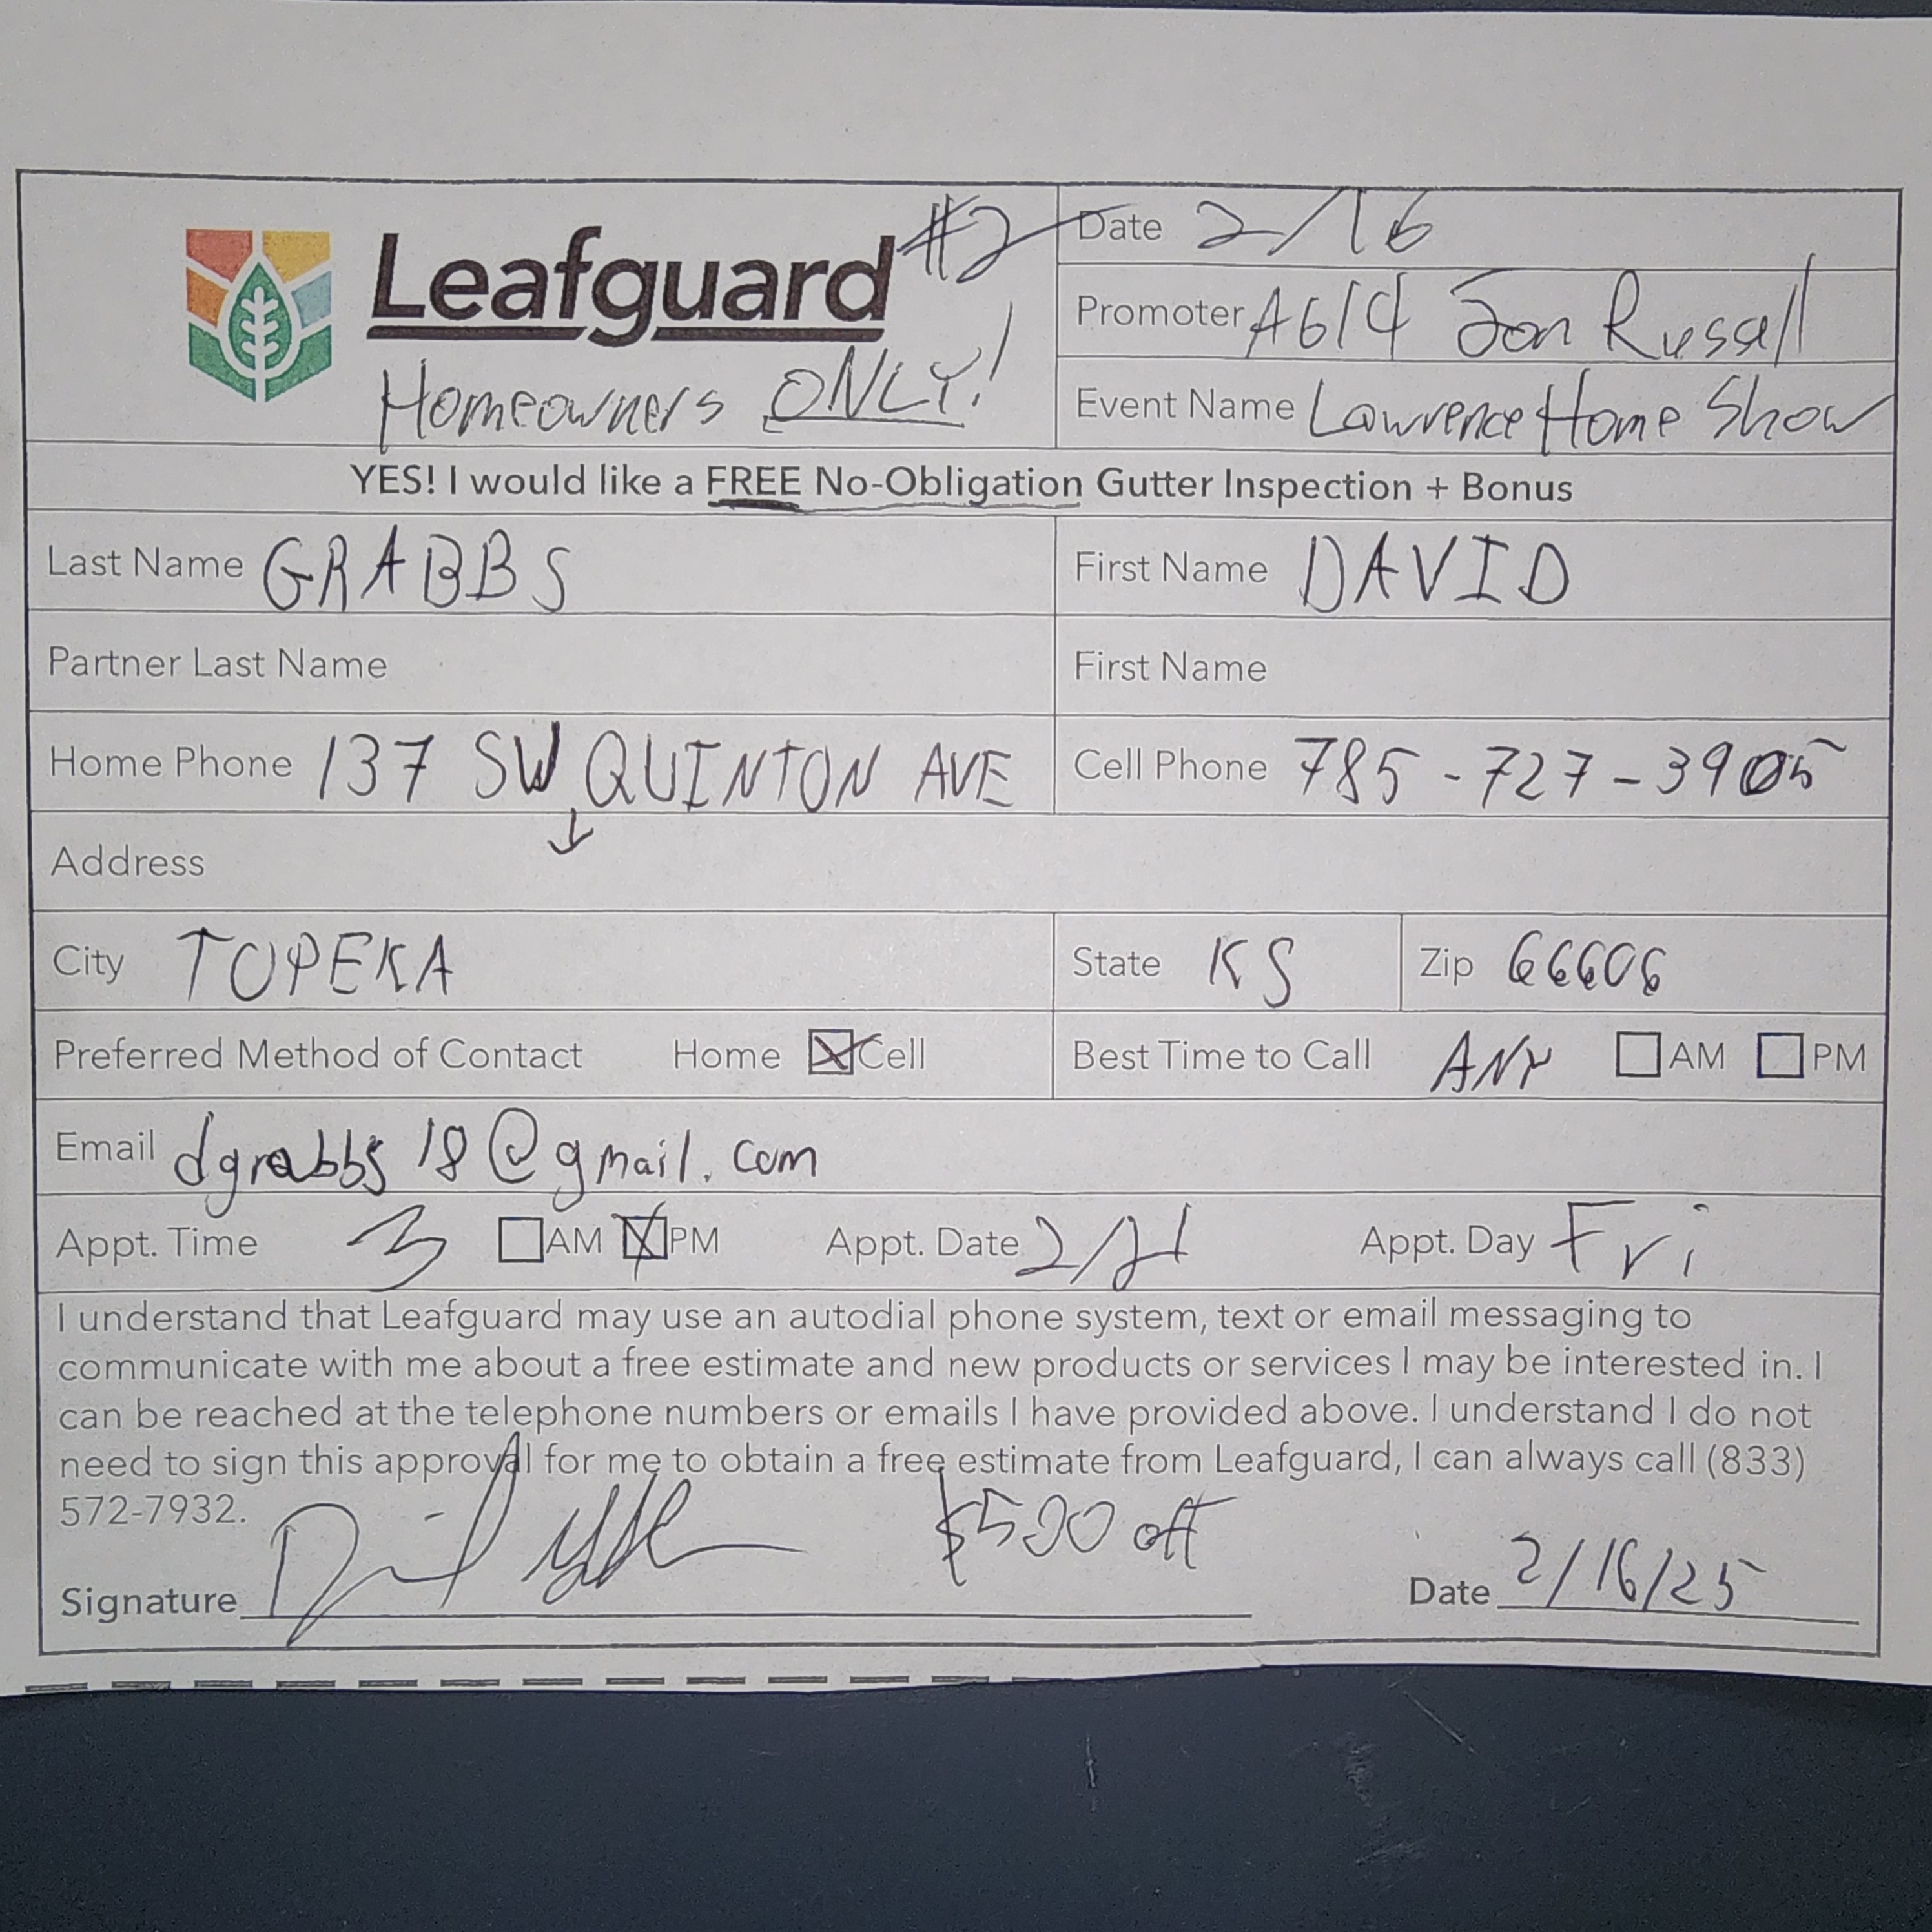 Leafguard #2
Homeowners ONLY!
Date 2/16
Promoter A614 Jon Russell
Event Name Lawrence Home Show
YES! I would like a FREE No-Obligation Gutter Inspection + Bonus
Last Name GRABBS
First Name DAVID
Partner Last Name
First Name
Home Phone 137 SW QUINTON AVE
Cell Phone 785-727-3905
Address
City TOPEKA
State KS
Zip 66606
Preferred Method of Contact Home Cell
Best Time to Call ANY AM PM
Email dgrabbs18@gmail.com
Appt. Time 3 AM PM Appt. Date 2/21 Appt. Day Fri
I understand that Leafguard may use an autodial phone system, text or email messaging to
communicate with me about a free estimate and new products or services I may be interested in. I
can be reached at the telephone numbers or emails I have provided above. I understand I do not
need to sign this approval for me to obtain a free estimate from Leafguard, I can always call (833)
572-7932.
$500 off
Signature
Date 2/16/25